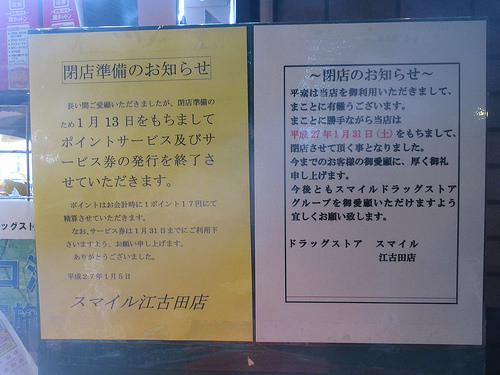 閉店準備のお知らせ
長い間ご愛顧いただきましたが、閉店準備の
ため1月13日をもちまして
ポイントサービス及びサ
ービス券の発行を終了さ
せていただきます。
ポイントはお会計時に1ポイント17円にて
精算させていただきます。
なお、サービス券は1月31日までにご利用下
さいますよう、お願い申し上げます。
ありがとうございました。
平成27年1月5日
スマイル江古田店
～閉店のお知らせ～
平素は当店を御利用いただきまして、
まことに有難うございます。
まことに勝手ながら当店は
平成27年1月31日(土)をもちまして、
閉店させて頂く事となりました。
今までのお客様の御愛顧に、厚く御礼
申し上げます。
今後ともスマイルドラッグストア
グループを御愛顧いただけますよう
宜しくお願い致します。
ドラッグストア スマイル
江古田店